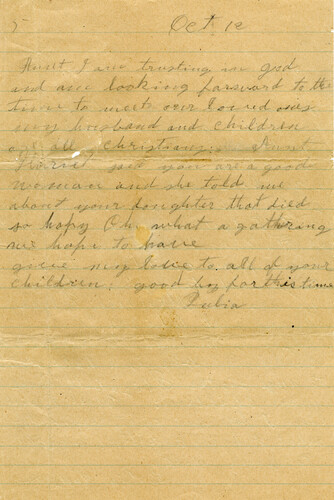 5 Oct 12
Aunt I am trusting in god
and am looking forward to the
time to meet our loved ones
my husband and children
are all christians Aunt
said you are a good
woman and she told me
about your daughter that died
so hapy Oh what a gathering
we hope to have
give my love to all of your
children. good by for this time